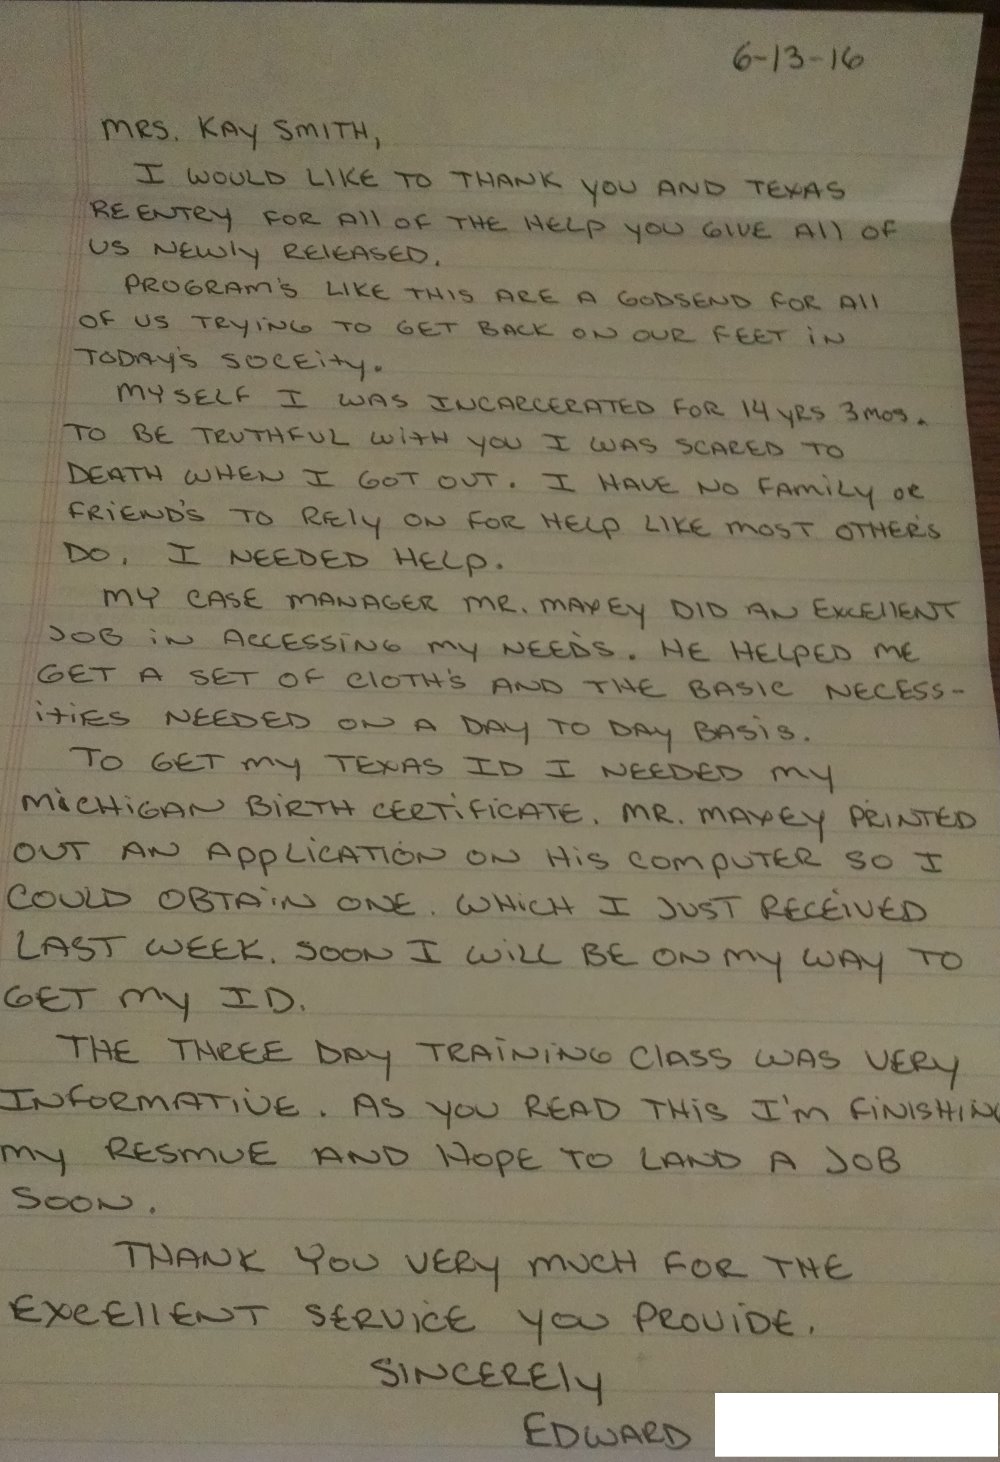 6-13-16
MRS. KAY SMITH,
I WOULD LIKE TO THANK YOU AND TEXAS
REENTRY FOR All OF THE HELP YOU GIVE All OF
US NEWly RElEASED.
PROGRAM'S LIKE THIS ARE A GODSEND FOR All
OF US TRYING TO GET BACK ON OUR FEET IN
TODAY'S SOCEITY.
MYSELF I WAS INCARCERATED FOR 14 YRS 3 MOS.
TO BE TRUTHFUL WITH YOU I WAS SCARED TO
DEATH WHEN I GOT OUT. I HAVE NO FAMILY OR
FRIEND'S TO RELY ON FOR HELP LIKE MOST OTHER'S
DO. I NEEDED HELP.
MY CASE MANAGER MR. MAXEY DID AN EXCEllENT
JOB IN ACCESSING MY NEEDS. HE HELPED ME
GET A SET OF CLOTH'S AND THE BASIC NECESS-
ITIES NEEDED ON A DAY TO DAY BASIS.
TO GET MY TEXAS ID I NEEDED MY
MICHIGAN BIRTH CERTIFICATE. MR. MAXEY PRINTED
OUT AN APPLICATION ON HIS COMPUTER SO I
COULD OBTAIN ONE. WHICH I JUST RECEIVED
LAST WEEK. SOON I WILL BE ON MY WAY TO
GET MY ID.
THE THREE DAY TRAINING CLASS WAS VERY
INFORMATIVE. AS YOU READ THIS I'M FINISHING
MY RESMUE AND HOPE TO LAND A JOB
SOON.
THANK YOU VERY MUCH FOR THE
EXCEllENT SERVICE YOU PROVIDE.
SINCERELY
EDWARD